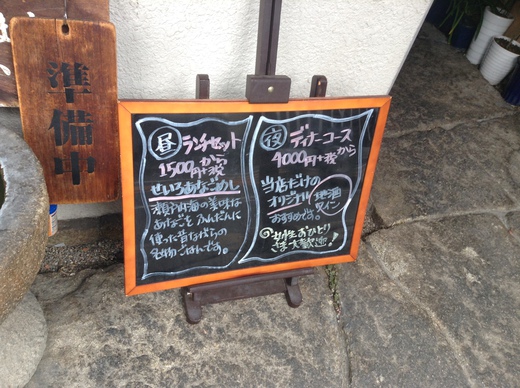 準備中
昼 ランチセット
1500円+税から
せいろあなごめし
瀬戸内海の美味な
あなごを ふんだんに
使った昔ながらの
名物ごはんです。
夜 ディナーコース
4000円+税から
当店だけの
オリジナル 地酒 ワイン
おすすめです。
女性おひとり
さま大歓迎!